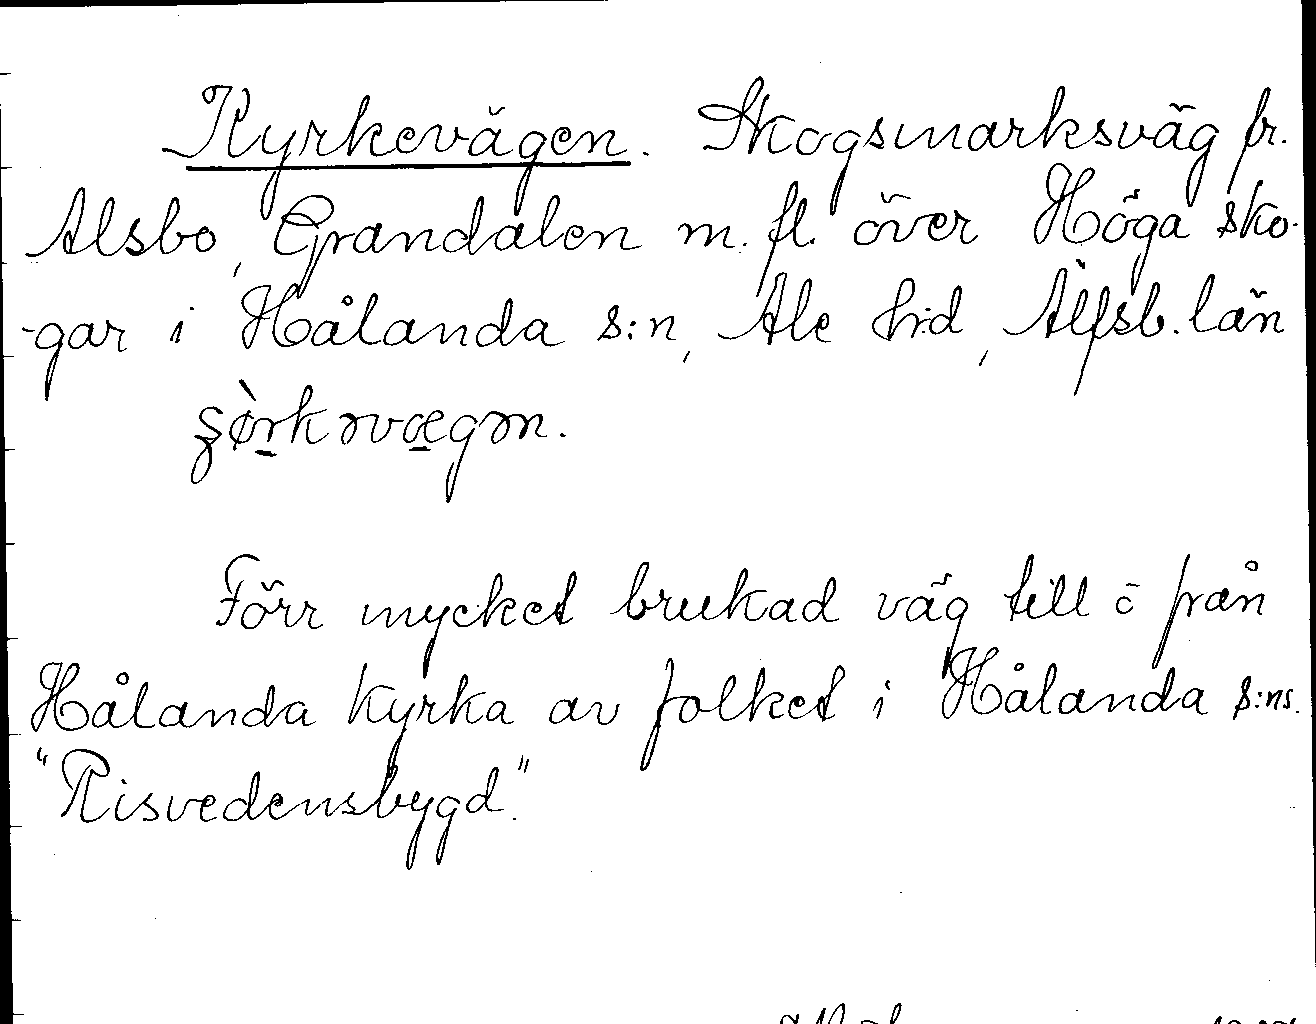 Kyrkevägen. Skogsmarksväg fr.
Alsbo, Grandalen m. fl. över Höga sko-
-gar i Hålanda s:n, Ale hd, Älfsb. län
Förr mycket brukad väg till o från
Hålanda kyrka av folket i Hålanda s:ns.
"Risvedensbygd".